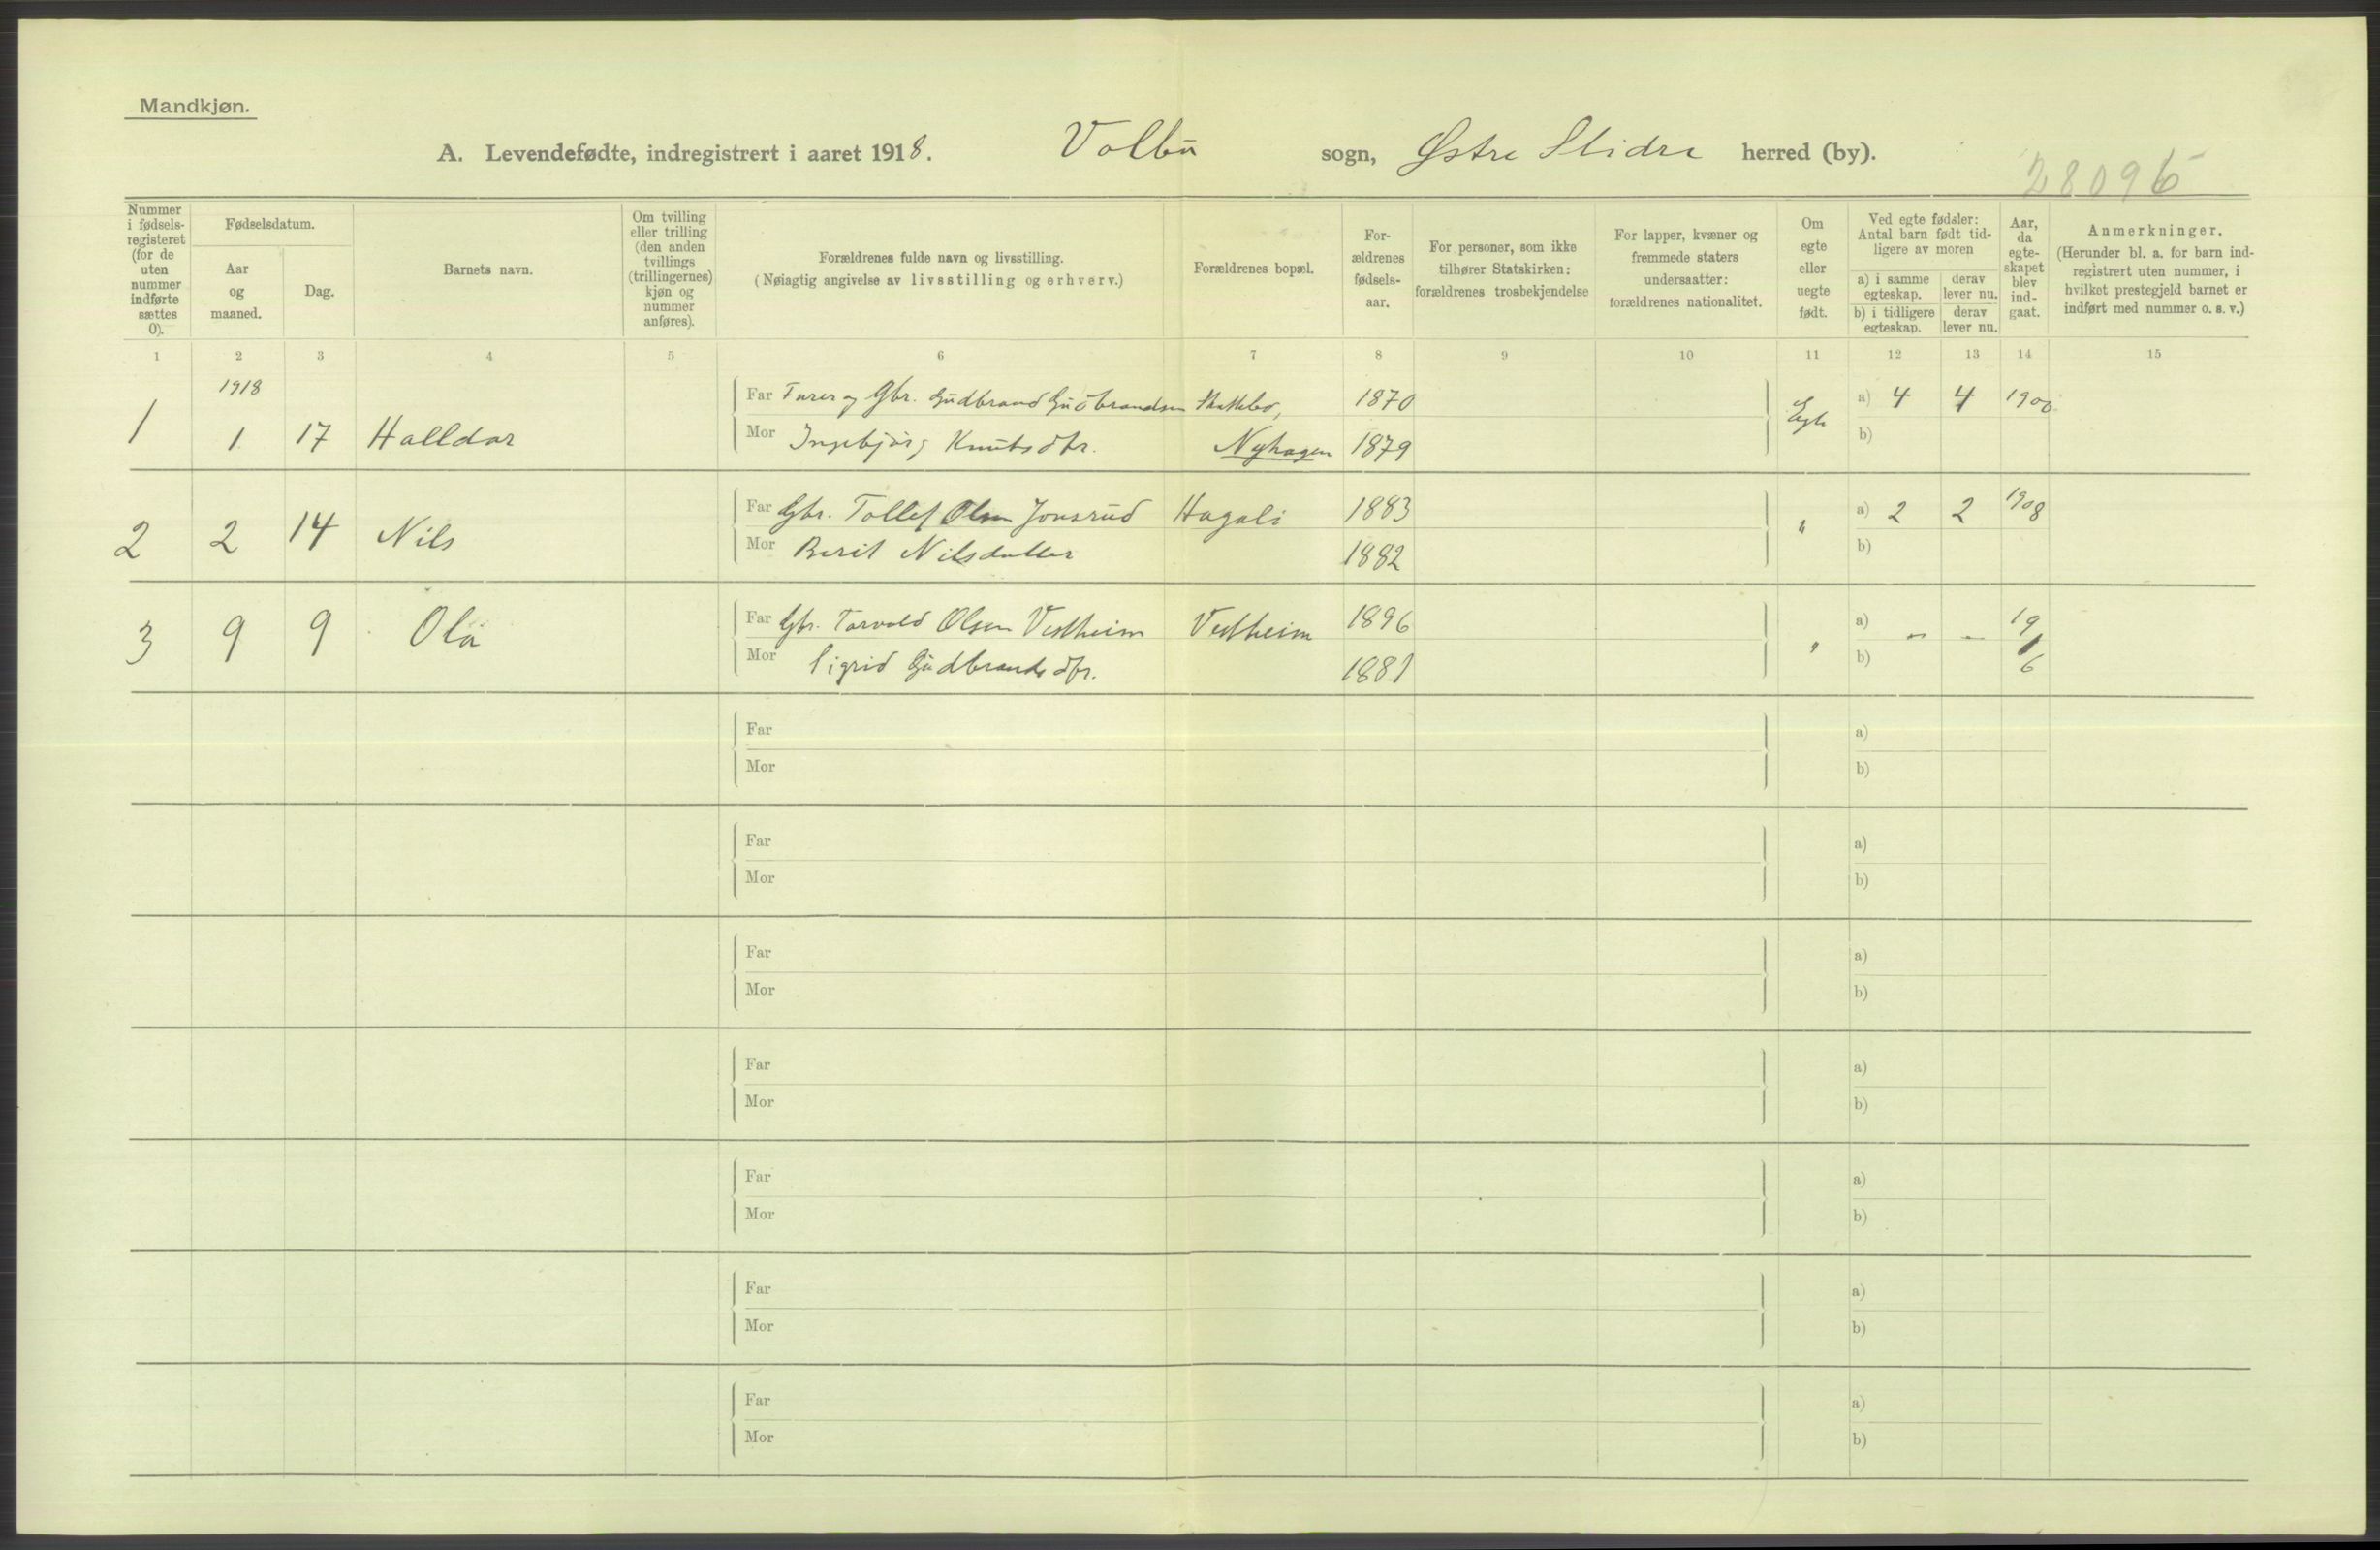 Mandkjøn.
A. Levendefødte, indregistrert i aaret 1918. Volbu sogn, Østre Slidre herred (by).
28096
Nummer i fødsels-registeret (for de uten nummer indførte sættes 0).
Fødselsdatum.
Aar og maaned.
Dag.
Barnets navn.
Om tvilling eller trilling (den anden tvillings (trillingernes) kjøn og nummer anføres).
Forældrenes fulde navn og livsstilling.
(Nøiagtig angivelse av livsstilling og erhverv.)
Forældrenes bopæl.
For-ældrenes fødsels-aar.
For personer, som ikke tilhører Statskirken: forældrenes trosbekjendelse
For lapper, kvæner og fremmede staters undersaatter: forældrenes nationalitet.
Om egte eller uegte født.
Ved egte fødsler: Antal barn født tid-ligere av moren
a) i samme egteskap.
derav lever nu.
b) i tidligere egteskap.
derav lever nu.
Aar, da egte-skapet blev ind-gaat.
Anmerkninger.
(Herunder bl. a. for barn ind-registrert uten nummer, i hvilket prestegjeld barnet er indført med nummer o. s. v.)
1 2 3 4 5 6 7 8 9 10 11 12 13 14 15
1918
Far Furer og Gbr. Gudbrand Gudbrandsen 1870 a) 4 4 1900
1 1 17 Halldor Egte
Mor Ingebjörg Knutsdtr. Nyhagen 1879 b)
Far Gbr. Tollef Olsen Jonsrud Hagali 1883 a) 2 2 1908
2 2 14 Nils "
Mor Berit Nilsdatter 1882 b)
Far Gbr. Torvald Olsen Vestheim Vestheim 1896 a) - - 19
3 9 9 Ola "
Mor Sigrid Gudbrandsdtr. 1881 b) 6
Far a)
Mor b)
Far a)
Mor b)
Far a)
Mor b)
Far a)
Mor b)
Far a)
Mor b)
Far a)
Mor b)
Far a)
Mor b)